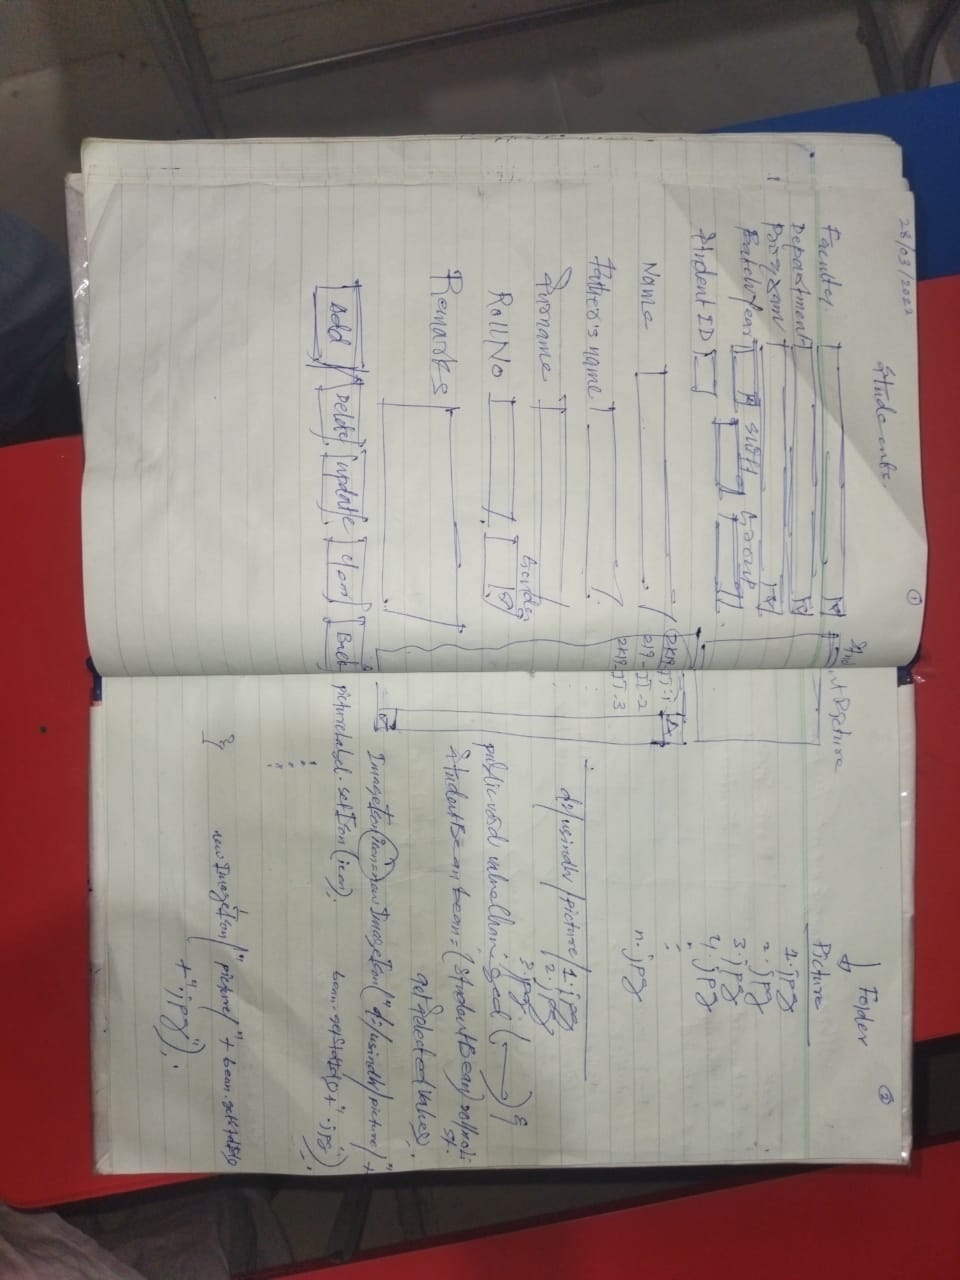 28/03/2022
1
Students
Faculty
Department
Program
Batch Year Shift Group
Student ID
Name
Father's name
Surname
Gender
Roll No
Remarks
Add Delete update Clear Back
Student Picture
2K19-IT-1
2K19-IT-3
2
Folder
Picture
1.jpg
2.jpg
3.jpg
4.jpg
n.jpg
d:/usindh/picture/1.jpg
2.jpg
3.jpg
public void valueChanged ( ) {
StudentBean bean = (StudentBean) rollnoList.
getSelectedValue();
ImageIcon icon = new ImageIcon("d:/usindh/picture/" +
bean.getStdId() + ".jpg");
pictureLabel.setIcon(icon);
}
new ImageIcon("picture/" + bean.getStdId()
+ ".jpg");